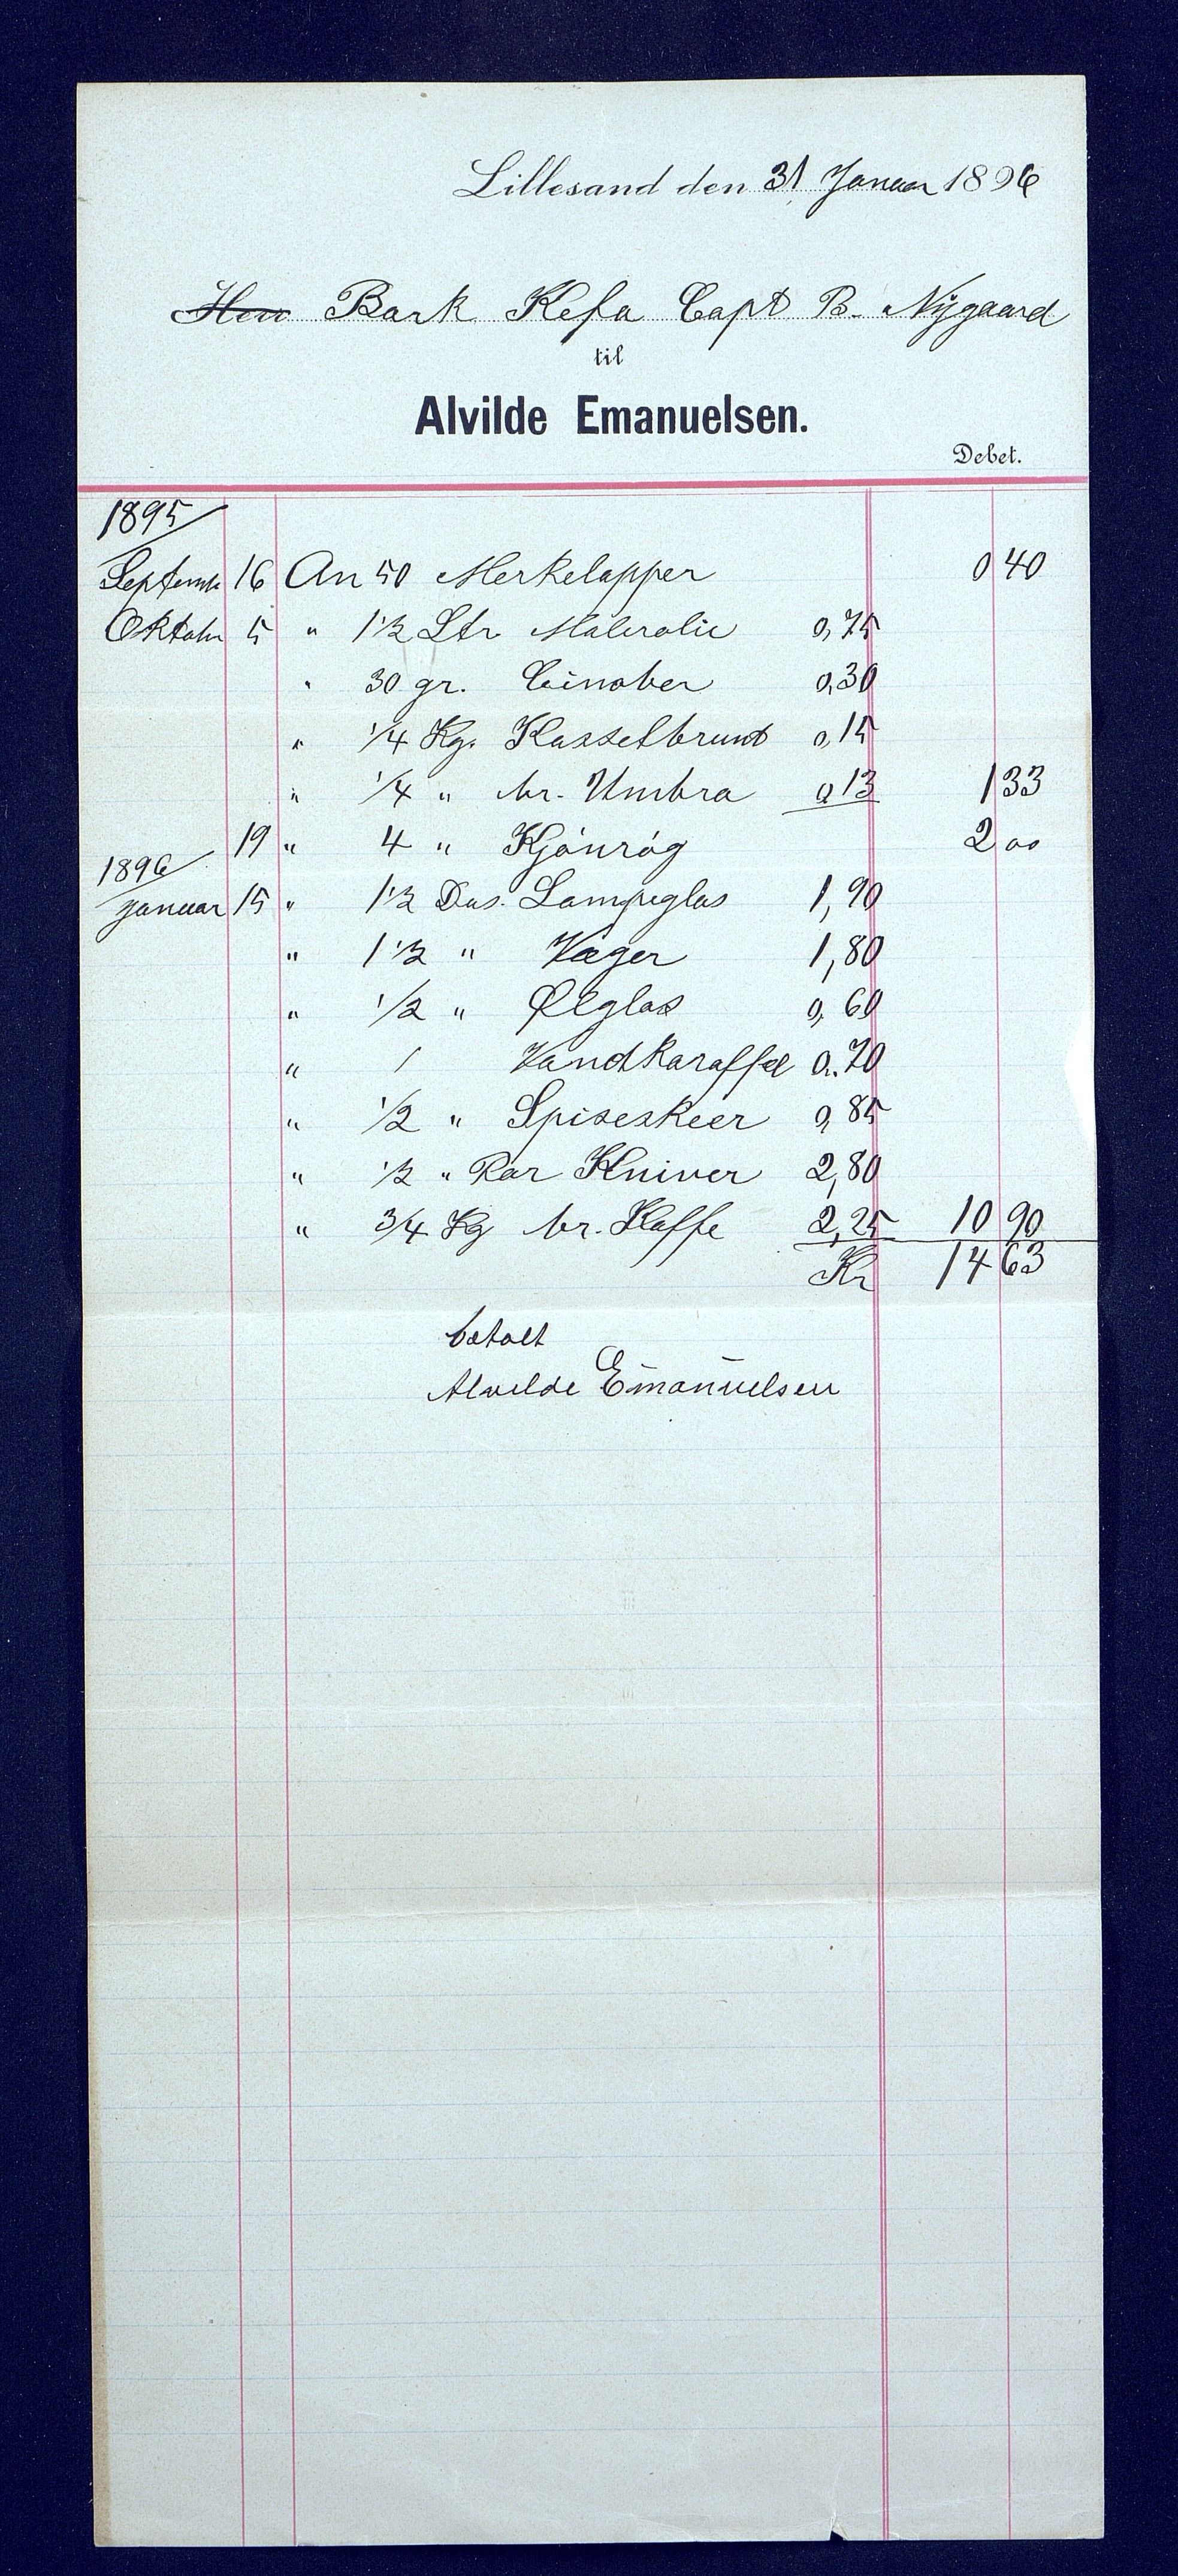 Lillesand den 31 Januar 1896
Herr Bark Kefa Capt B. Nygaard
til
Alvilde Emanuelsen.
Debet.
1895
Septemb 16 An 50 Merkelapper 0 40
Oktobr 5 " 1 1/2 Ltr Malerolie 0,75
" 30 gr. Cinober 0,30
" 1/4 Kg. Kasselbrunt 0,15
" 1/4 " br. Umbra 0,13 1 33
19 " 4 " Kjönrög 2 00
1896
Januar 15 " 1 1/2 Dus. Lampeglas 1,90
" 1 1/2 " Væger 1,80
" 1/2 " Ølglas 0,60
" 1 Vandkaraffel 0.70
" 1/2 " Spiseskeer 0,85
" 1/2 " Par Kniver 2,80
" 3/4 Kg br. Kaffe 2,25 10 90
Kr 14 63
betalt
Alvilde Emanuelsen